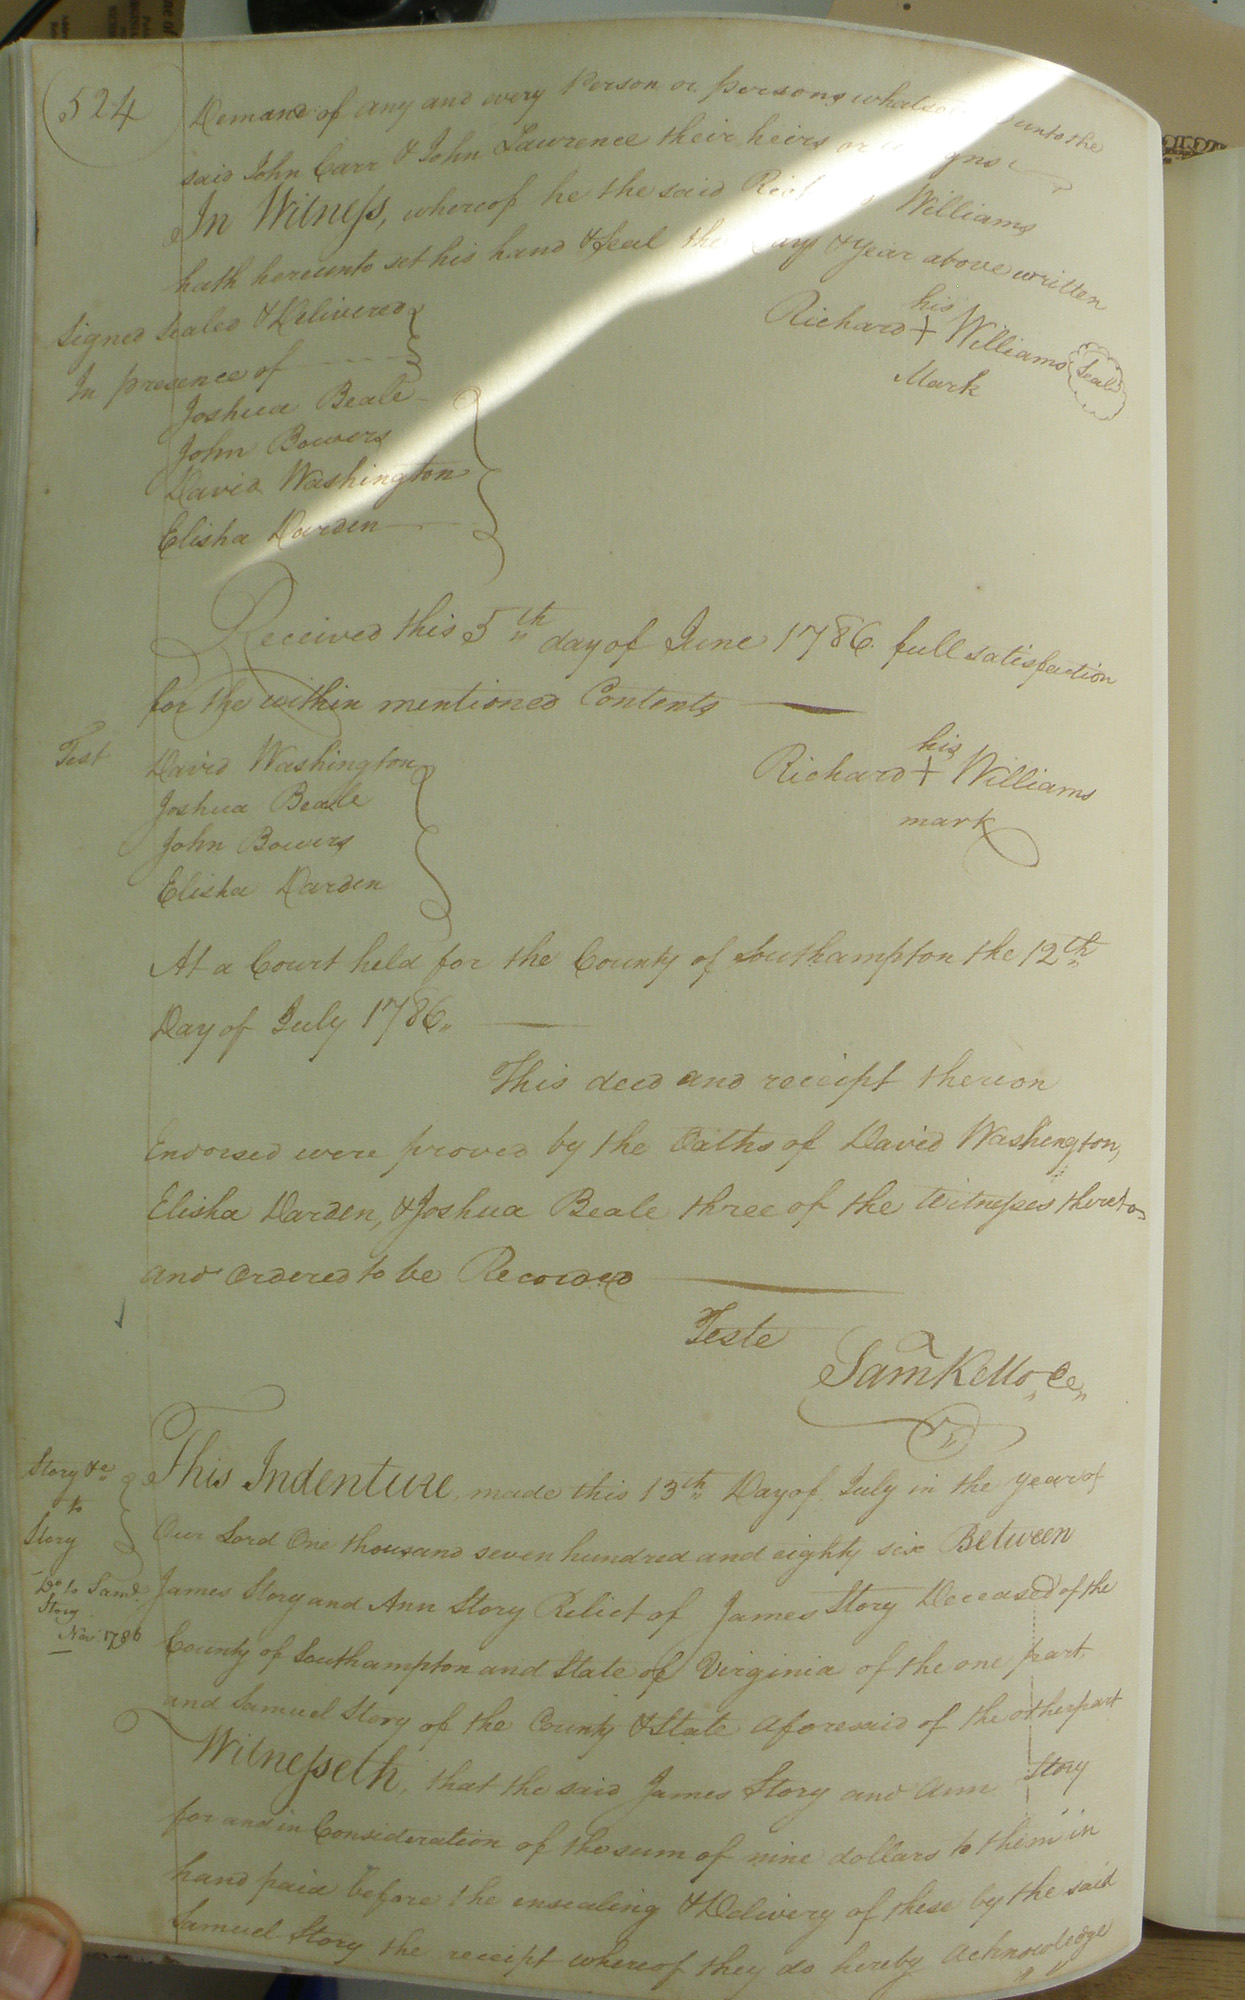 524
Demand of any and every Person or persons unto the
said John Carr & John Lawrence their heirs or
In Witness, whereof he the said Williams
hath hereunto set his hand & Seal the Day & Year above written
Signed Sealed & Delivered
In presence of
his
Richard + Williams Seal
Mark
Joshua Beale
John Bowers
David Washington
Elisha Darden
Received this 5th day of June 1786. full satisfaction
for the within mentioned Contents
Test
David Washington
Joshua Beale
John Bowers
Elisha Darden
his
Richard + Williams
mark
At a Court held for the County of Southampton the 12th
Day of July 1786
This deed and receipt thereon
Endorsed were proved by the Oaths of David Washington,
Elisha Darden, & Joshua Beale three of the Witnesses thereto
and Ordered to be Recorded
Teste
Sam Kello Cc
Story &c
to
Story
Do to Saml
Story
Nov. 1786
This Indenture made this 13th Day of July in the year of
Our Lord One thousand seven hundred and eighty six Between
James Story and Ann Story Relict of James Story Deceased of the
County of Southampton and State of Virginia of the one part
and Samuel Story of the County & State aforesaid of the other part
Witnesseth, that the said James Story and Ann Story
for and in Consideration of the sum of nine dollars to them in
hand paid before the ensealing & Delivery of these by the said
Samuel Story the receipt whereof they do hereby acknowledge